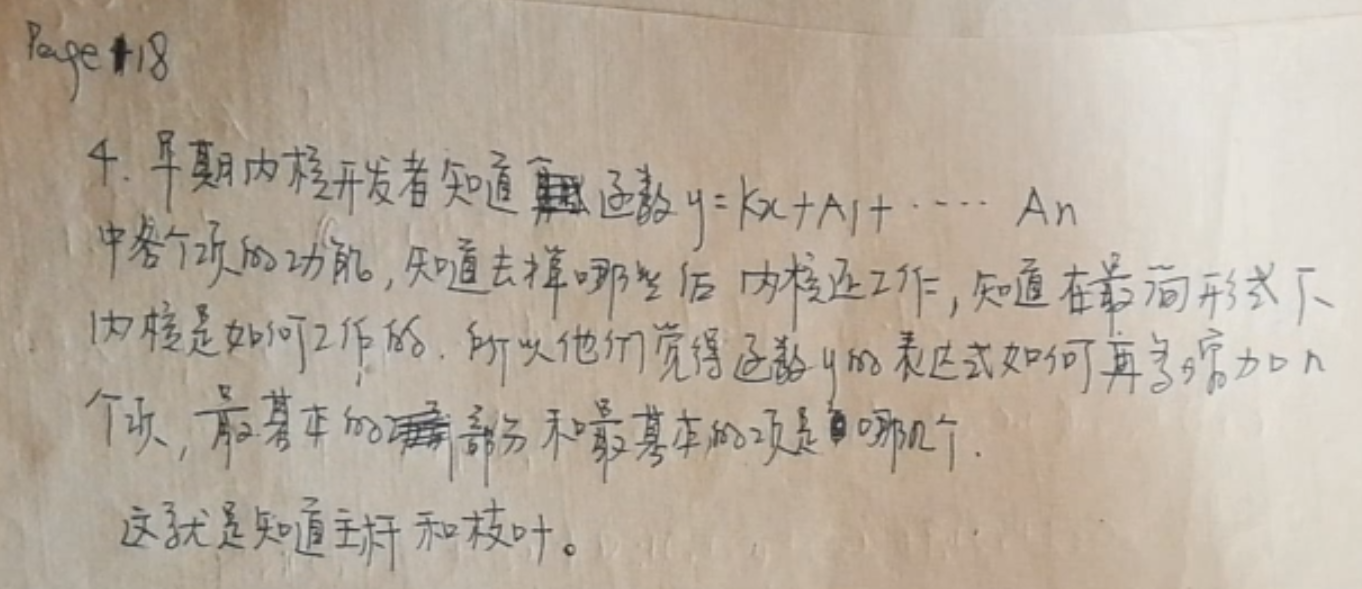 Page 18
4. 早期内核开发者知道函数y=kx+A1+····· An
中各个项的功能,知道去掉哪些后内核还工作,知道在最简形式下
内核是如何工作的.所以他们觉得函数y的表达式如何再多增加n
个项,最基本的部分和最基本的项是哪几个.
这就是知道主杆和枝叶。